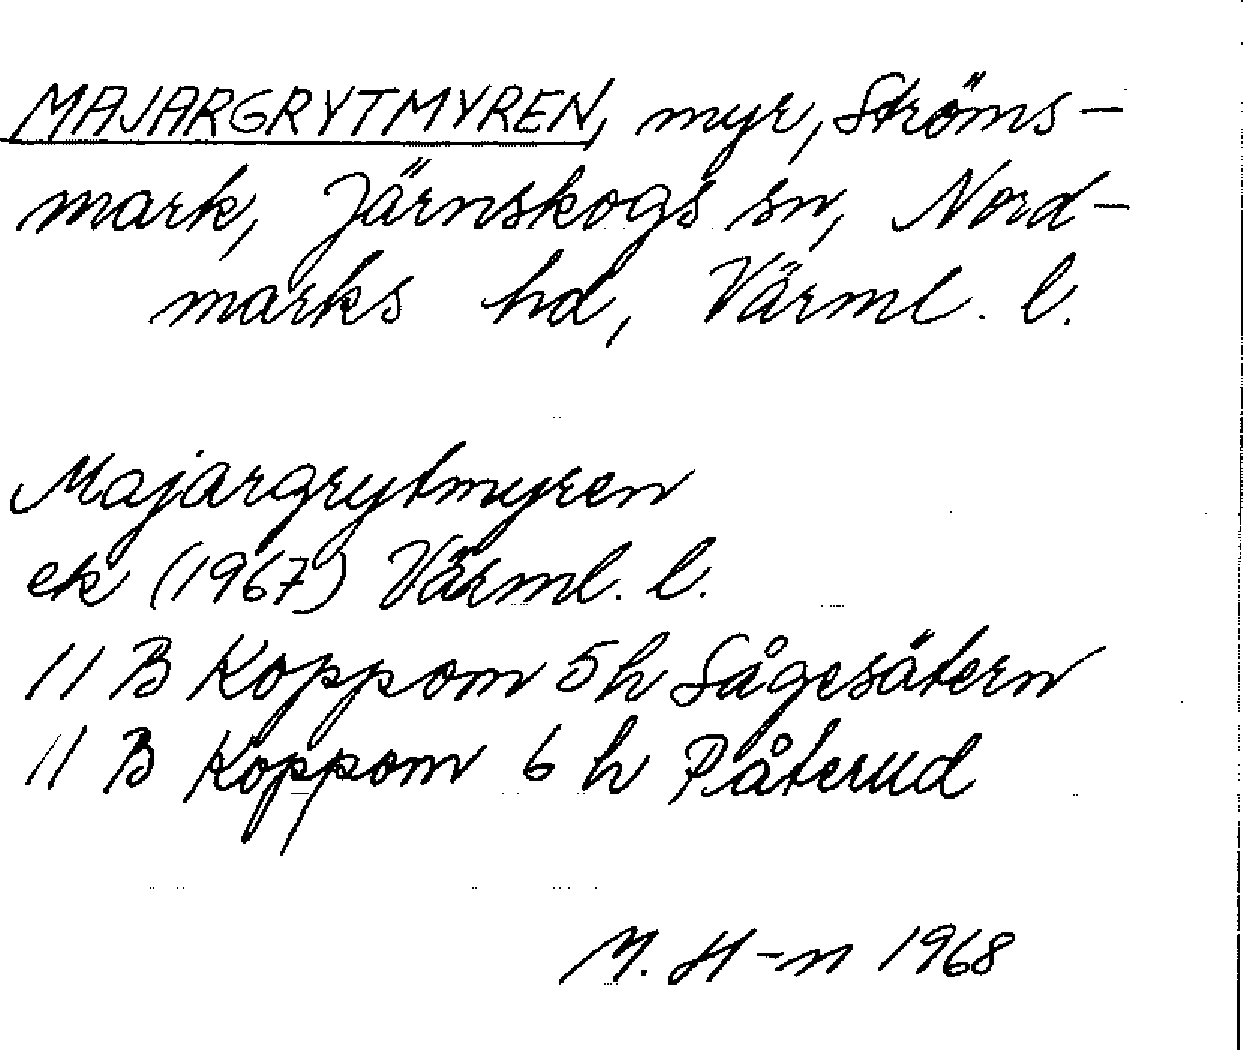 MAJARGRYTMYREN, myr, Ströms-
mark, Järnskogs sn, Nord-
marks hd, Värml. l.
Majargrytmyren
ek (1967) Värml. l.
11 B Koppom 5 h Sågesätern
11 B Koppom 6 h Påterud
M. H-n 1968